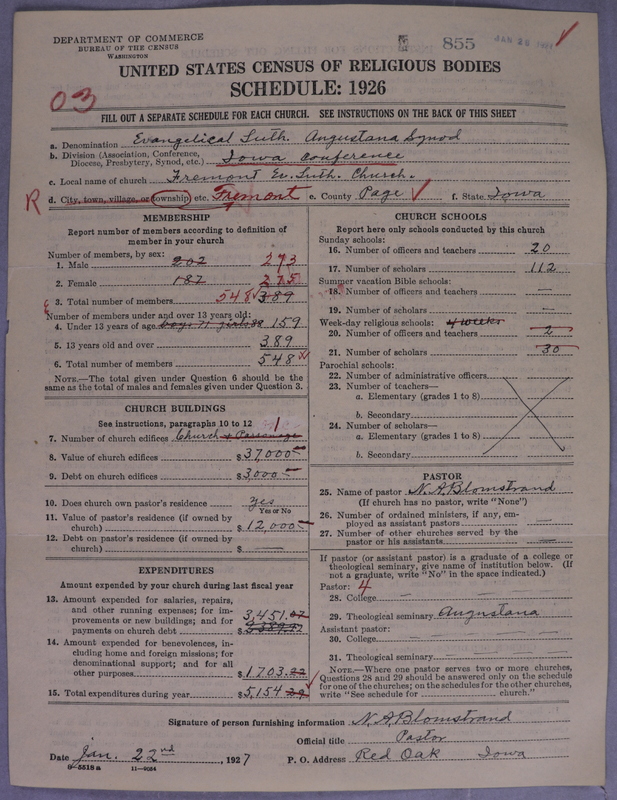 DEPARTMENT OF COMMERCE
BUREAU OF THE CENSUS
WASHINGTON
855
JAN 26
UNITED STATES CENSUS OF RELIGIOUS BODIES
SCHEDULE: 1926
03
FILL OUT A SEPARATE SCHEDULE FOR EACH CHURCH. SEE INSTRUCTIONS ON THE BACK OF THIS SHEET
a. Denomination Evangelical Luth. Augustana Synod
b. Division (Association, Conference, Diocese, Presbytery, Synod, etc.) Iowa Conference
c. Local name of church Fremont Ev. Luth. Church.
R d. City, town, village, or township etc. Fremont e. County Page f. State Iowa
MEMBERSHIP
Report number of members according to definition of
member in your church
Number of members, by sex:
1. Male 202 273
2. Female 187 275
3. Total number of members 548 389
Number of members under and over 13 years old:
4. Under 13 years of age boys 71 girls 88 159
5. 13 years old and over 389
6. Total number of members 548
NOTE.—The total given under Question 6 should be the
same as the total of males and females given under Question 3.
CHURCH BUILDINGS
See instructions, paragraphs 10 to 12
7. Number of church edifices Church + Parsonage 1
8. Value of church edifices $ 37,000
9. Debt on church edifices $ 3,000
10. Does church own pastor's residence yes
Yes or No
11. Value of pastor's residence (if owned by
church) $ 12,000
12. Debt on pastor's residence (if owned by
church) $ —
EXPENDITURES
Amount expended by your church during last fiscal year
13. Amount expended for salaries, repairs,
and other running expenses; for im-
provements or new buildings; and for
payments on church debt 3,451. $
14. Amount expended for benevolences, in-
cluding home and foreign missions; for
denominational support; and for all
other purposes $ 1703.
15. Total expenditures during year $ 5,154
CHURCH SCHOOLS
Report here only schools conducted by this church
Sunday schools:
16. Number of officers and teachers 20
17. Number of scholars 112
Summer vacation Bible schools:
18. Number of officers and teachers —
19. Number of scholars —
Week-day religious schools: 4 weeks
20. Number of officers and teachers 2
21. Number of scholars 30
Parochial schools:
22. Number of administrative officers
23. Number of teachers—
a. Elementary (grades 1 to 8)
b. Secondary
24. Number of scholars—
a. Elementary (grades 1 to 8)
b. Secondary
PASTOR
25. Name of pastor N. A. Blomstrand
(If church has no pastor, write "None")
26. Number of ordained ministers, if any, em-
ployed as assistant pastors —
27. Number of other churches served by the
pastor or his assistants —
If pastor (or assistant pastor) is a graduate of a college or
theological seminary, give name of institution below. (If
not a graduate, write "No" in the space indicated.)
Pastor: 4
28. College — —
29. Theological seminary Augustana
Assistant pastor:
30. College — —
31. Theological seminary — —
NOTE.—Where one pastor serves two or more churches,
Questions 28 and 29 should be answered only on the schedule
for one of the churches; on the schedules for the other churches,
write "See schedule for church."
Signature of person furnishing information N. A. Blomstrand
Official title Pastor
Date Jan. 22nd, 1927 P. O. Address Red Oak Iowa
8-5518a 11-9034